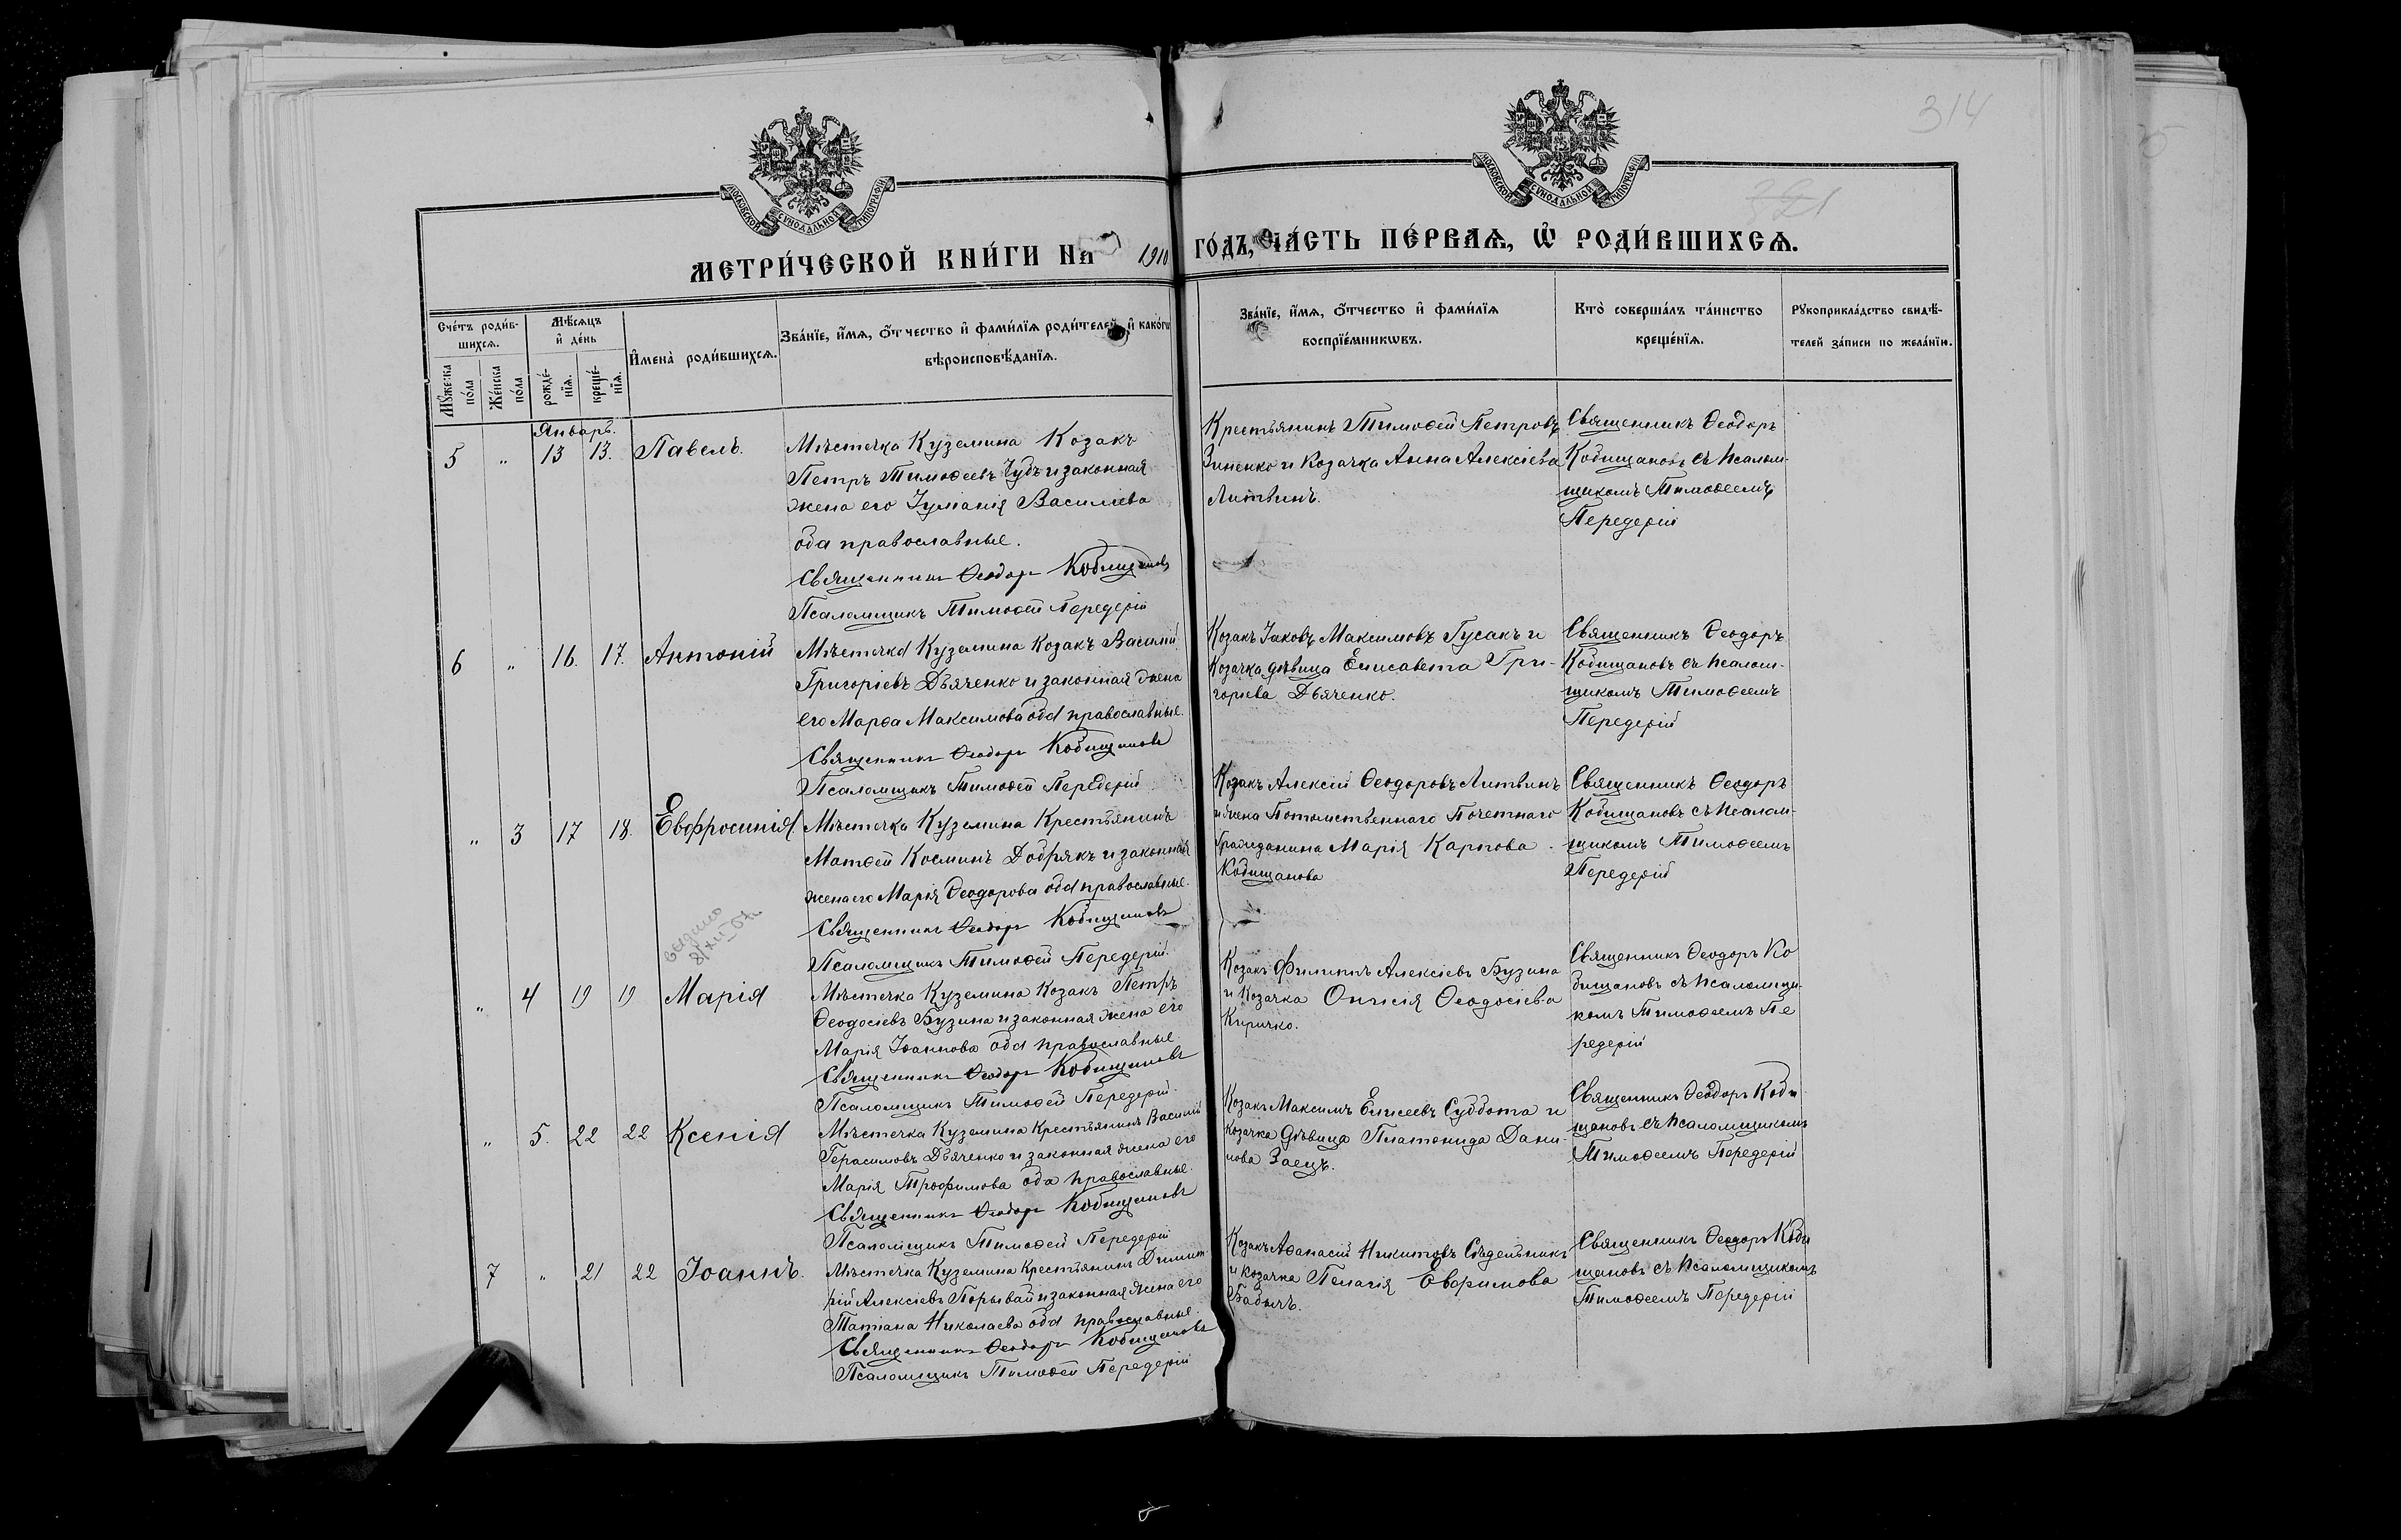 314
321
МОСКОВСКОЙ СУНОДАЛЬНОЙ ТИПОГРАФІИ
МОСКОВСКОЙ СУНОДАЛЬНОЙ ТИПОГРАФІИ
МЕТРИ́ЧЕСКОЙ КНИ́ГИ НА 1910 ГО́ДЪ, ЧА́СТЬ ПЕ́РВАѦ, Ѽ РОДИ́ВШИХСѦ.
Сче́тъ роди́в-
шихсѧ.
Мꙋ́жеска
по́ла
Же́нска
по́ла
Мѣ́сѧцъ
и҆ де́нь
рожде́-
нїѧ.
креще́-
нїѧ.
И҆мена̀ роди́вшихсѧ.
Зва́нїе, и҆́мѧ, о҆́тчество и҆ фами́лїѧ роди́телей, и҆ како́гѡ
вѣроисповѣ́данїѧ.
Зва́нїе, и҆́мѧ, о҆́тчество и҆ фами́лїѧ
воспрїе́мникѡвъ.
Кто̀ соверша́лъ та́инство
креще́нїѧ.
Рꙋкоприкла́дство свидѣ́-
телей за́писи по жела́нїю.
Январь.
5 " 13 13. Павелъ.
Мѣстечка Куземина Козакъ
Петръ Тимоѳеевъ Чубъ и законная
жена его Іуліанія Василіева
оба православные.
Священникъ Ѳеодоръ Кобищановъ
Псаломщикъ Тимоѳей Передерій
Крестьянинъ Тимоѳей Петровъ
Зиненко и Козачка Анна Алексіева
Литвинъ.
Священникъ Ѳеодоръ
Кобищановъ съ Псалом-
щикомъ Тимоѳеемъ
Передерій
6 " 16. 17. Антоній
Мѣстечка Куземина Козакъ Василій
Григоріевъ Дьяченко и законная жена
его Марѳа Максимова оба православные.
Священникъ Ѳеодоръ Кобищановъ
Псаломщикъ Тимоѳей Передерій
Козакъ Іаковъ Максимовъ Гусакъ и
Козачка дѣвица Елисавета Гри-
горіева Дьяченко.
Священникъ Ѳеодоръ
Кобищановъ съ Псалом-
щикомъ Тимоѳеемъ
Передерій
" 3 17 18. Евфросинія
Мѣстечка Куземина Крестьянинъ
Матѳей Косминъ Добрякъ и законная
жена его Марія Ѳеодорова оба православные.
Священникъ Ѳеодоръ Кобищановъ
Псаломщикъ Тимоѳей Передерій.
Козакъ Алексій Ѳеодоровъ Литвинъ
и жена Потомственнаго Почетнаго
Гражданина Марія Карпова
Кобищанова
Священникъ Ѳеодоръ
Кобищановъ съ Псалом-
щикомъ Тимоѳеемъ
Передерій
видано
8/XII 67
" 4 19 19 Марія
Мѣстечка Куземина Козакъ Петръ
Ѳеодосіевъ Бузина и законная жена его
Марія Іоаннова оба православные.
Священникъ Ѳеодоръ Кобищановъ
Псаломщикъ Тимоѳей Передерій.
Козакъ Филиппъ Алексіевъ Бузина
и Козачка Онисія Ѳеодосіева
Киричко.
Священникъ Ѳеодоръ Ко
бищановъ съ Псаломщи-
комъ Тимоѳеемъ Пе
редерій
" 5. 22 22 Ксенія
Мѣстечка Куземина Крестьянинъ Василій
Герасимовъ Дьяченко и законная жена его
Марія Трофимова оба православные.
Священникъ Ѳеодоръ Кобищановъ
Псаломщикъ Тимоѳей Передерій
Козакъ Максимъ Елисеевъ Суббота и
Козачка дѣвица Платонида Дани-
лова Заецъ.
Священникъ Ѳеодоръ Коби
щановъ съ Псаломщикомъ
Тимоѳеемъ Передерій
7 " 21 22 Іоаннъ.
Мѣстечка Куземина Крестьянинъ Димит
рій Алексіевъ Порывай и законная жена его
Татіана Николаева оба православные.
Священникъ Ѳеодоръ Кобищановъ
Псаломщикъ Тимоѳей Передерій
Козакъ Аѳанасій Никитовъ Сѣдельникъ
и козачка Пелагія Евфимова
Бабичъ.
Священникъ Ѳеодоръ Коби
щановъ съ Псаломщикомъ
Тимоѳеемъ Передерій